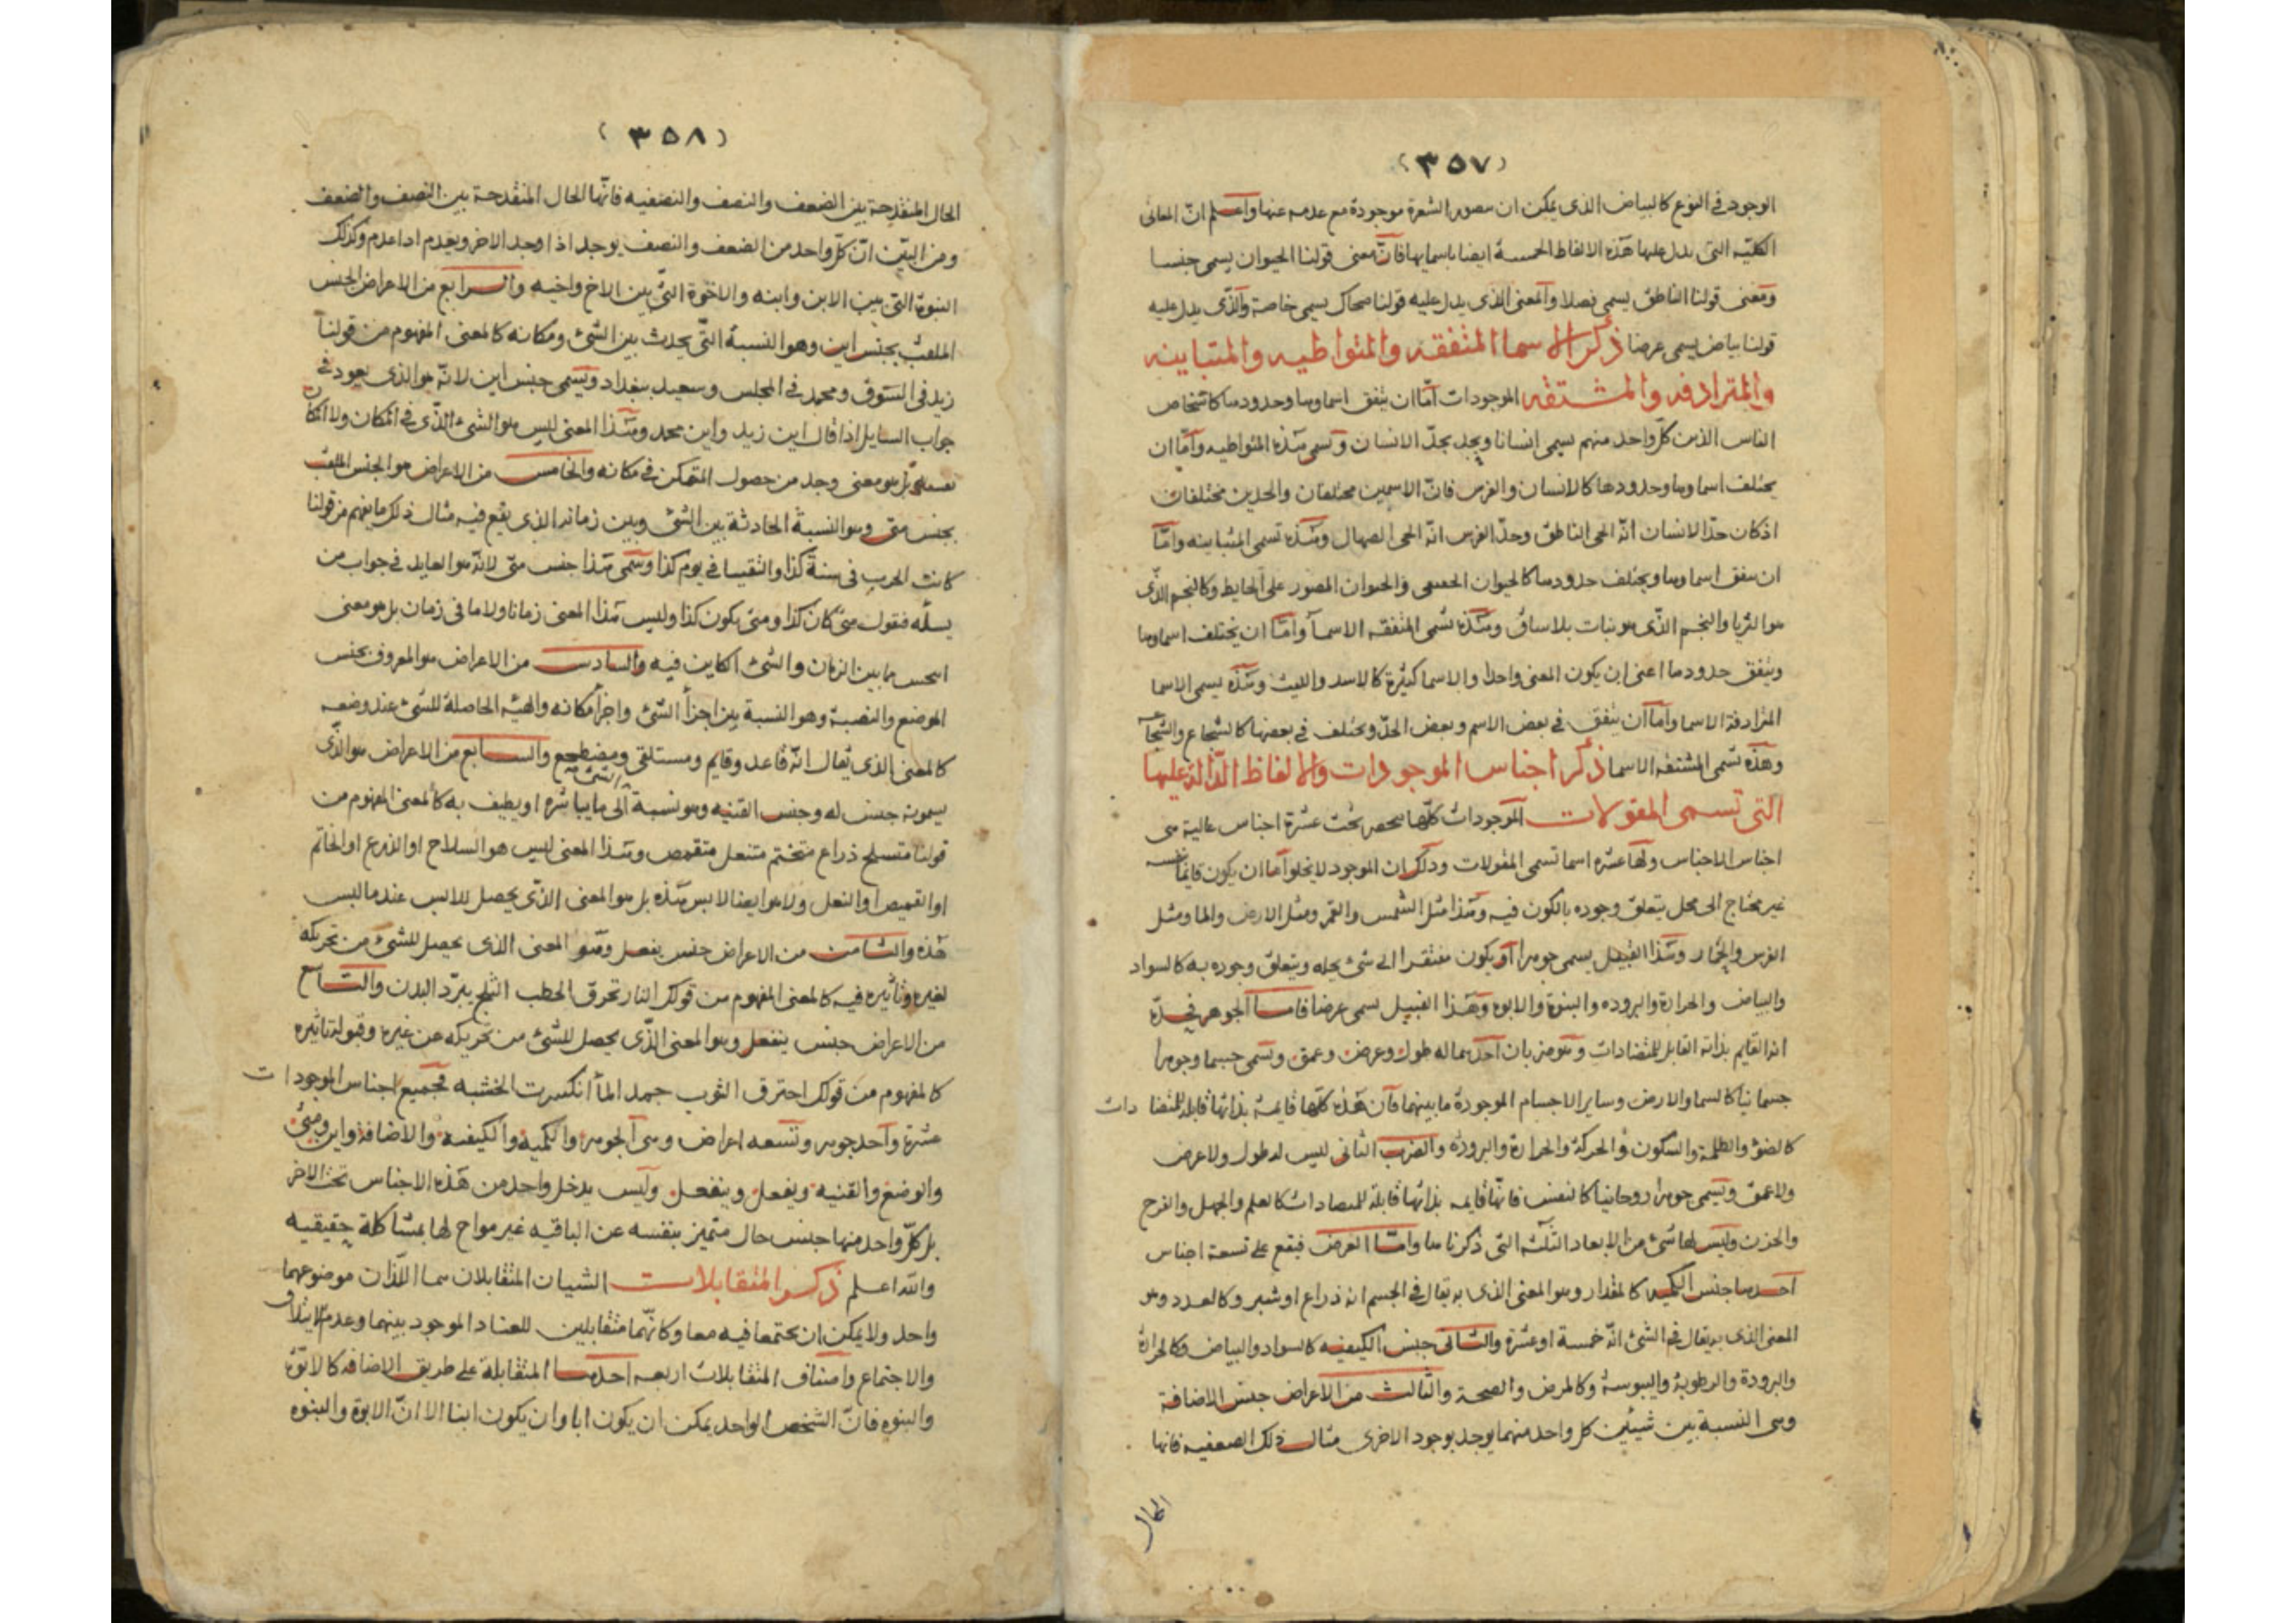 (٣٥٧)
الوجود في النوع كالبياض الذى يمكن ان سصور الشعرة موجودة مع عدمه عنها واعلم انّ المعانى
الكليّه التى يدل عليها هذه الالفاظ الخمسة ايضا باسمايها فانّ معنى قولنا الحيوان يسمى جنسا
ومعنى قولنا الناطق يسمى فصلا والمعنى الذى يدل عليه قولنا ضحاك يسمى خاصة والذى يدل عليه
قولنا بياض يسمى عرضا ذكر الاسما المتفقه والمتواطيه والمتباينه
والمترادفه والمشتقه الموجودات امّا ان يتفق اسماوها وحدودها كاشخاص
الناس الذين كلّ واحد منهم يسمى انسانا ويحد بحدّ الانسان وتسمى هذه المتواطيه وامّا ان
يختلف اسماوها وحدودها كالانسان والفرس فانّ الاسمين مختلفان والحدين مختلفان
اذ كان حدّ الانسان انّه الحى الناطق وحدّ الفرس انّه الحى الصهال وهذه تسمى المتباينه وامّا
ان سفق اسماوها ويختلف حدودها كالحيوان الحصصى والحيوان المصور على الحايط وكالنجم الذّى
هو الثريا والنجم الذّى هو نبات بلا ساق وهذه تسمى المتفقه الاسما وامّا ان يختلف اسماوها
ويتفق حدودها اعنى ان يكون المعنى واحدا والاسما كثيرة كالاسد والليث وهذه يسمى الاسما
المترادفة الاسما وامّا ان يتفق في بعض الاسم وبعض الحدّ ويختلف في بعضها كالشجاع والشجاعه
وهذه تسمى المشتقه الاسما ذكر اجناس الموجودات والالفاظ الدّالة عليها
التى تسمى المقولات الموجودات كلّها سحصر تحت عشرة اجناس عالية هى
اجناس الاجناس ولها عشره اسما تسمى المقولات وذلك ان الموجود لا يخلوا امّا ان يكون قايما بنفسه
غير محتاج الى محل يتعلق وجوده بالكون فيه وهذا مثل الشمس والقمر ومثل الارض والما ومثل
الفرس والحمار وهذا القبيل يسمى جوهرا او يكون مفتقرا الى شئ يحله ويتعلق وجوده به كالسواد
والبياض والحرارة والبروده والبنوة والابوه وهذا القبيل يسمى عرضا فامّا الجوهر فحدّه
انه القايم بذاته القابل للمتضادات وهو ضربان احدهما له طول وعرض وعمق وتسمى جسما وجوهرا
جسمانيا كالسما والارض وساير الاجسام الموجودة ما بينهما فان هذه كلّها قايمة بذاتها قابلة للمتضادات
كالضو والظلمة والسكون والحركة والحرارة والبرودة والضرب الثانى ليس له طول ولا عرض
ولا عمق وتسمى جوهرا روحانيا كالنفس فانّها قايمه بذاتها قابلة للمتضادات كالعلم والجهل والفرح
والحزن وليس لها شئ من الابعاد الثلثه التى ذكرناها وامّا العرض فيقع على تسعة اجناس
احدها جنس الكميه كالمقدار وهو المعنى الذى به يقال في الجسم انه ذراع او شبر وكالعدد وهو
المعنى الذى به يقال في الشئ انّه خمسة او عشرة والثانى جنس الكيفيه كالسواد والبياض وكالحرارة
والبرودة والرطوبة واليبوسة وكالمرض والصحة والثالث من الاعراض جنس الاضافة
وهى النسبة بين شيئين كل واحد منهما يوجد بوجود الاخرى مثال ذلك الضعفيه فانها
الحال
(٣٥٨)
الحال المنقدحة بين الضعف والنصف والنصفيه فانّها الحال المنقدحة بين النصف والضعف
ومن البيّن انّ كلّ واحد من الضعف والنصف يوجد اذا وجد الاخر ويعدم اذا عدم وكذلك
البنوة التى بين الابن وابنه والاخوة التى بين الاخ واخيه والرابع من الاعراض الجنس
الملقب بجنس اين وهو النسبة التّى يحدث بين الشئ ومكانه كالمعنى المفهوم من قولنا
زيد في السّوق ومحمد في المجلس وسعيد ببغداد وتسمى جنس اين لانّه هو الذى يعود في
جواب السايل اذا قال اين زيد واين محمد وهذا المعنى ليس هو الشئ الذّى في المكان ولا المكان
نفسه بل هو معنى وجد من حصول المتمكن في مكانه والخامس من الاعراض هو الجنس الملقب
بجنس متى وهو النسبة الحادثة بين الشئ وبين زمانه الذى يقع فيه مثال ذلك ما يفهم من قولنا
كانت الحرب فى سنة كذا والتقينا في يوم كذا وسمى هذا جنس متى لانّه هو العايد في جواب من
يسله فيقول متى كان كذا ومتى يكون كذا وليس هذا المعنى زمانا ولا ما فى زمان بل هو معنى
بما بين الزمان والشئ الكاين فيه والسادس من الاعراض هو المعروف بجنس
الموضع والنصبة وهو النسبة بين اجزأ الشئ واجزأ مكانه والهيئه الحاصلة للشئ عند وضعه
كالمعنى الذى يقال انّه قاعد وقايم ومستلقى ومضطجع والسابع من الاعراض هو الذّى
يسمونه جنس له وجنس القنيه وهو نسبة الشئ الى ما يباشره او يطيف به كالمعنى المفهوم من
قولنا متسلح ذراع متختم متنعل متقمص وهذا المعنى ليس هو السلاح او الدرع او الخاتم
او القميص او النعل ولا هو ايضا لابس هذه بل هو المعنى الذّى يحصل للابس عند ما لبس
هذه والثامن من الاعراض جنس يفعل وهو المعنى الذى يحصل للشئ من تحريكه
لغيره وتاثيره فيه كالمعنى المفهوم من قولك النار تحرق الحطب الثلج يبرّد البدن والتاسع
من الاعراض جنس ينفعل وهو المعنى الذّى يحصل للشئ من تحريكه عن غيره وقبوله تاثيره
كالمفهوم من قولك احترق الثوب جمد المأ انكسرت الخشبه فجميع اجناس الموجودات
عشرة واحد جوهر وتسعه اعراض وهى الجوهر والكمية والكيفيه والاضافة واين ومتى
والوضع والقنيه ويفعل وينفعل وليس يدخل واحد من هذه الاجناس تحت الاخر
بل كلّ واحد منها جنس حال متميز بنفسه عن الباقيه غير مواح لها بمشاكلة حقيقيه
والله اعلم ذكر المتقابلات الشيان المتقابلان هما اللّذان موضوعهما
واحد ولا يمكن ان يجتمعا فيه معا وكانّهما متقابلين للعناد الموجود بينهما وعدم الايتلاف
والاجتماع واصناف المتقابلات اربعه احدها المتقابلة على طريق الاضافه كالابوّة
والبنوه فانّ الشخص الواحد يمكن ان يكون ابا وان يكون ابنا الا انّ الابوة والبنوه